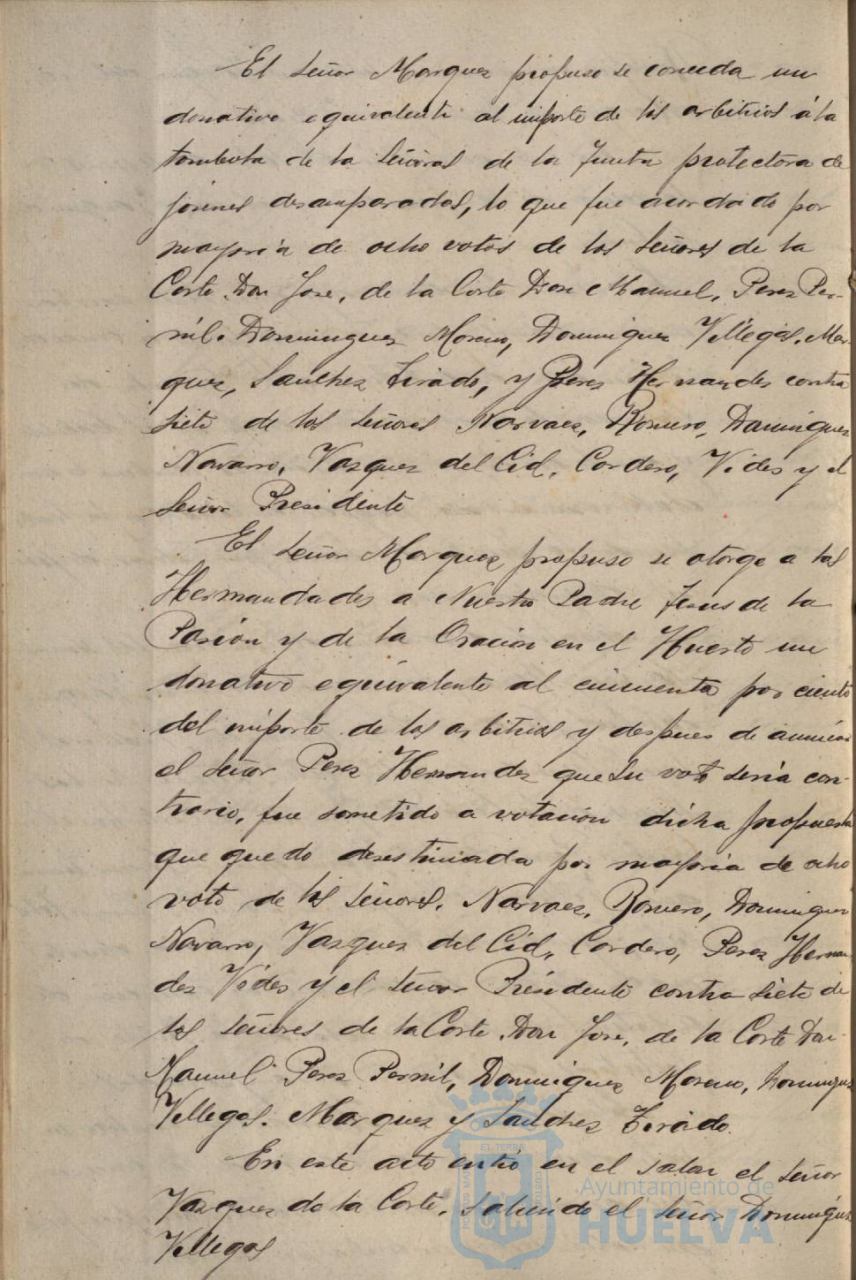 El Señor Marquez propuso se conceda un
donativo equivalente al importe de los arbitrios á la
tombola de la Señoras de la Junta protectora de
jovenes desamparadas, lo que fue acordado por
mayoria de ocho votos de los Señores de la
Corte Don Jose, de la Corte Don Manuel, Perez Per-
nil. Dominguez Moreno, Dominguez Villegas. Mar-
quez, Sanchez Tirado, y Perez Hernandez contra
siete de los Señores Narvaez, Romero, Dominguez
Navarro, Vazquez del Cid, Cordero, Vides y el
Señor Presidente
El Señor Marquez propuso se otorge a las
Hermandades a Nuestro Padre Jesus de la
Pasion y de la Oracion en el Huerto un
donativo equivalente al cincuenta por ciento
del importe de los arbitrios y despues de
el Señor Perez Hernandez que su voto seria con-
trario, fue sometido a votacion dicha propuesta
que quedo desestimada por mayoria de ocho
voto de los Señores. Narvaez, Romero, Dominguez
Navarro, Vazquez del Cid, Cordero, Perez Hernan-
dez Vides y el Señor Presidente contra siete de
los Señores de la Corte Don Jose, de la Corte Don
Manuel Perez Pernil, Dominguez Moreno, Dominguez
Villegas. Marquez y Sanchez Tirado.
En este acto entró en el salon el Señor
Vazquez de la Corte, saliendo el Señor Dominguez
Villegas
Ayuntamiento de
HUELVA